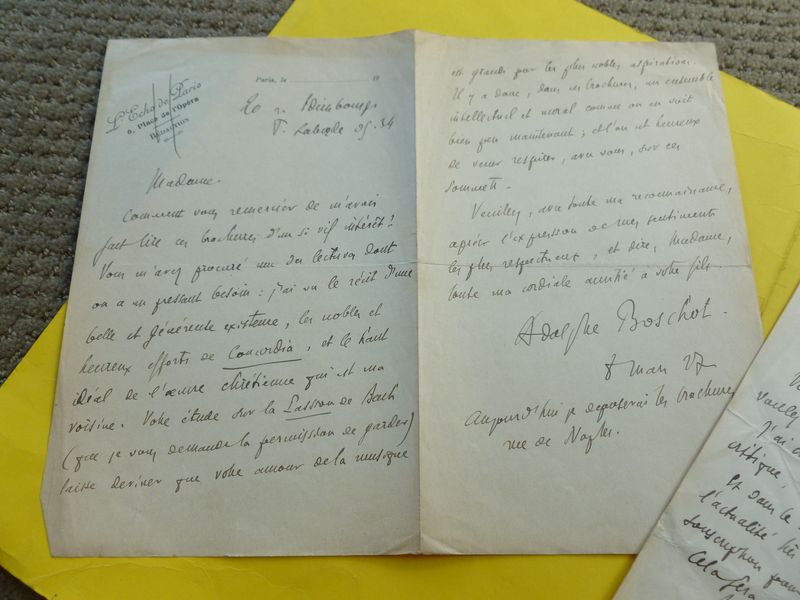 L'Echo de Paris
6, Place de l'Opéra
Rédaction
Paris, le 19
Madame.
Comment vous remercier de m'avoir
fait lire ces brochures d'un si vif intérêt ?
Vous m'avez procuré une des lectures dont
on a un pressant besoin : j'ai vu le récit d'une
belle et généreuse existence, les nobles et
heureux efforts de Concordia, et le haut
idéal de l'œuvre chrétienne qui est ma
voisine. Votre étude sur la Passion de Bach
(que je vous demande la permission de garder)
laisse deviner que votre amour de la musique
est grandi par les plus nobles aspirations.
Il y a donc, dans ces brochures, un ensemble
intellectuel et moral comme on en voit
bien peu maintenant ; et l'on est heureux
de venir respirer, avec vous, sur ces
sommets.
Veuillez, avec toute ma reconnaissance,
agréer l'expression de mes sentiments
les plus respectueux, et dire, Madame,
toute ma cordiale amitié à votre fils.
Adolphe Boschot.
8 mars 27
Aujourd'hui je déposerai les brochures
rue de Naples.
J'ai
critique,
Et dans le
l'actualité